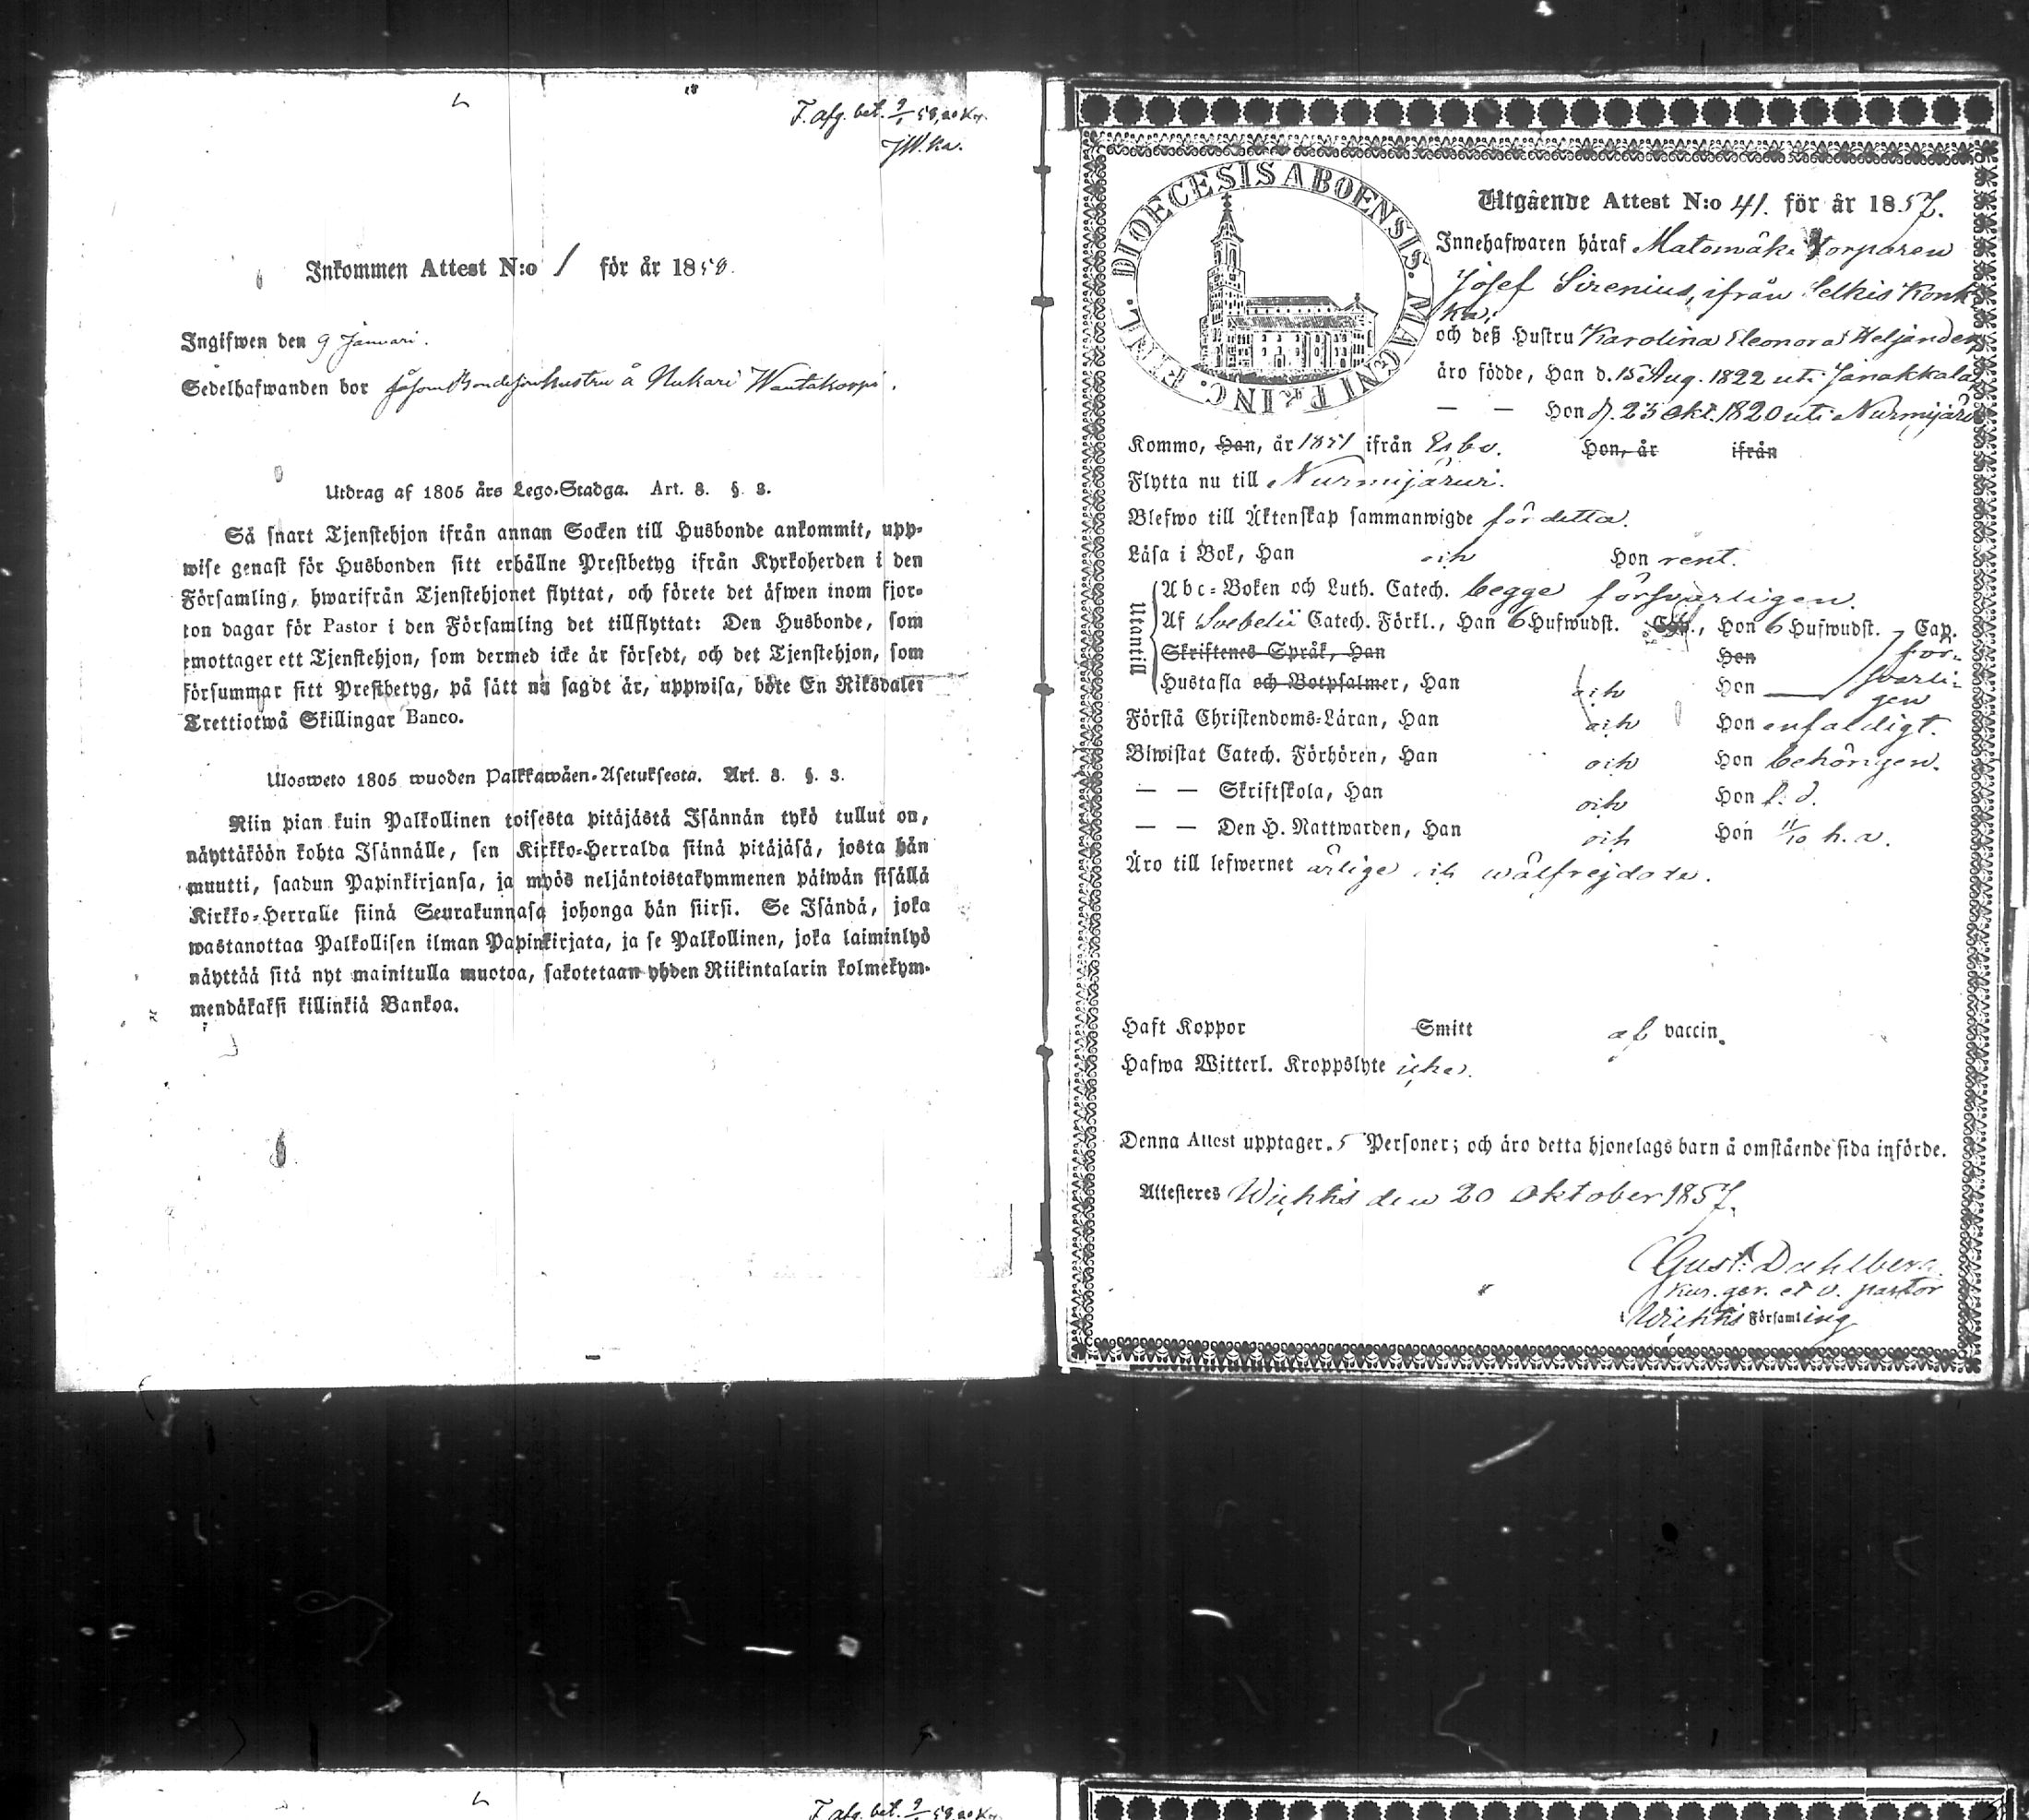 F. afg. bet. 9/1 58, 20 K.
Inkommen Attest N:o 1 för år 1858.
Ingifwen den 9 Januari.
Sedelhafwanden bor såsom Bondesonhustru å Nukari Wantakorpi.
Utdrag af 1805 års Lego-Stadga. Art. 8. §. 3.
Så snart Tjenstehjon ifrån annan Socken till Husbonde ankommit, upp-
wise genast för Husbonden sitt erhållne Prestbetyg ifrån Kyrkoherden i den
Församling, hwarifrån Tjenstehjonet flyttat, och förete det äfwen inom fjor-
ton dagar för Pastor i den Församling det tillflyttat: Den Husbonde, som
emottager ett Tjenstehjon, som dermed icke är försedt, och det Tjenstehjon, som
försummar sitt Prestbetyg, på sätt nu sagdt är, uppwisa, böte En Riksdaler
Trettiotwå Skillingar Banco.
Ulosweto 1805 wuoden Palkkawäen-Asetuksesta. Art. 8. §. 3.
Niin pian kuin Palkollinen toisesta pitäjästä Isännän tykö tullut on,
näyttäköön kohta Isännälle, sen Kirkko-Herralda siinä pitäjäsä, josta hän
muutti, saadun Papinkirjansa, ja myös neljäntoistakymmenen päiwän sisällä
Kirkko-Herralle siinä Seurakunnasa johonga hän siirsi. Se Isändä, joka
wastanottaa Palkollisen ilman Papinkirjata, ja se Palkollinen, joka laiminlyö
näyttää sitä nyt mainitulla muotoa, sakotetaan yhden Riikintalarin kolmekym-
mendäkaksi killinkiä Bankoa.
DIOECESIS ABOENSIS. MAGNI PRINC. FINL.
Utgående Attest N:o 41. för år 1857.
Innehafwaren häraf Matomäki torparen
Josef Sirenius, ifrån Selkis Konk
ka,
och deß Hustru Karolina Eleonora Heljander,
äro födde, Han d. 15 Aug. 1822 uti Janakkala
— — Hon d. 23 Okt. 1820 uti Nurmijärvi
Kommo, Han, år 1851 ifrån Esbo. Hon, år ifrån
Flytta nu till Nurmijärvi.
Blefwo till Äktenskap sammanwigde för detta.
Läsa i Bok, Han och Hon rent.
Utantill
Abc-Boken och Luth. Catech. begge försvarligen.
Af Svebelii Catech. Förkl., Han 6 Hufwudst. Cap., Hon 6 Hufwudst. Cap.
Skriftenes Språk, Han Hon för-
Hustafla och Botpsalmer, Han och Hon — svarli-
gen
Förstå Christendoms-Läran, Han och Hon enfaldigt.
Biwistat Catech. Förhören, Han och Hon behörigen.
— — Skriftskola, Han och Hon f. d.
— — Den H. Nattwarden, Han och Hon 11/10 h. a.
Äro till lefwernet ärlige och wälfrejdade.
Haft Koppor Smitt af vaccin.
Hafwa Witterl. Kroppslyte icke.
Denna Attest upptager 5 Personer; och äro detta hjonelags barn å omstående sida införde.
Attesteres Wichtis den 20 Oktober 1857.
Gust. Dahlberg
kur. ger. et v. pastor
i Wichtis Församling
F. afg. bet. 9/1 58, 20 K.